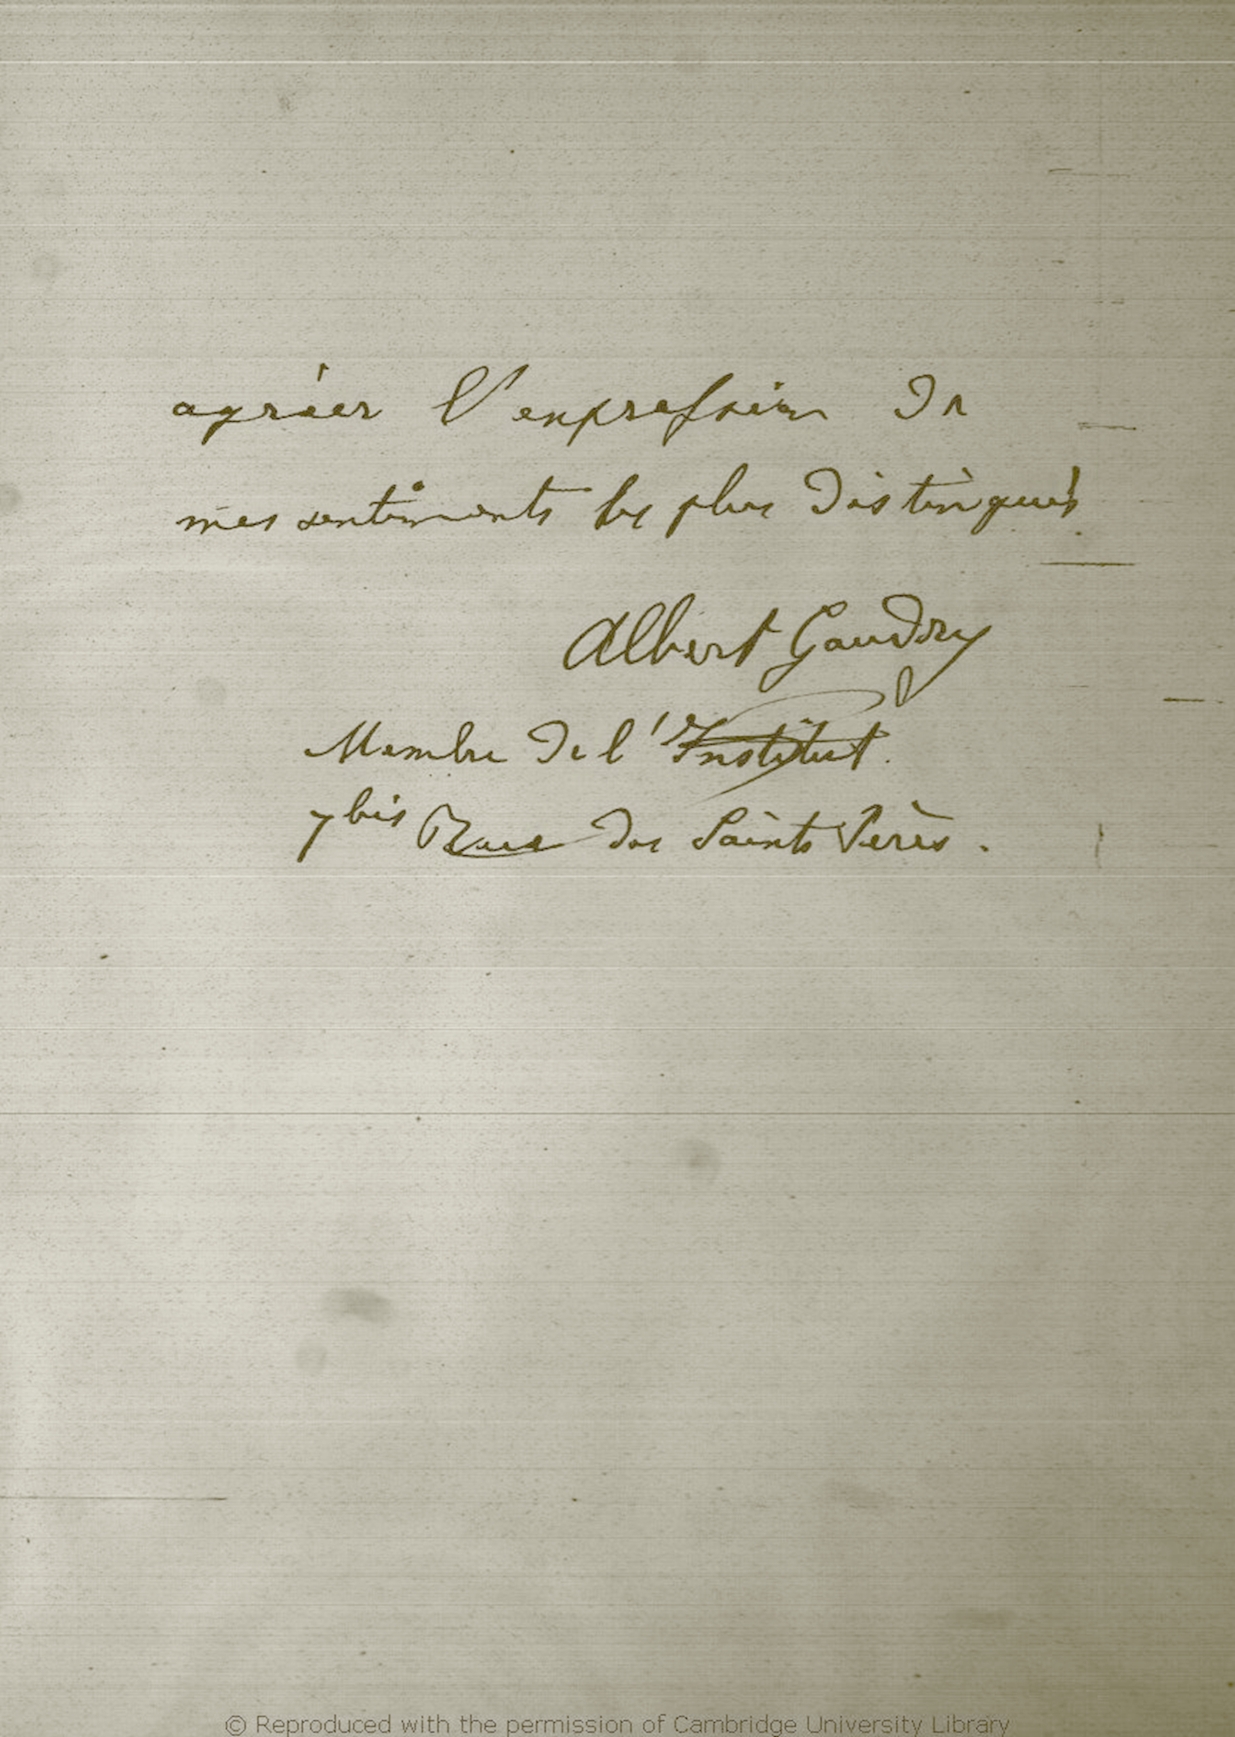 agréer l'expression de
mes sentiments les plus distingués.
Albert Gaudry
Membre de l'Institut.
7 bis Rue des Saints Pères.
© Reproduced with the permission of Cambridge University Library